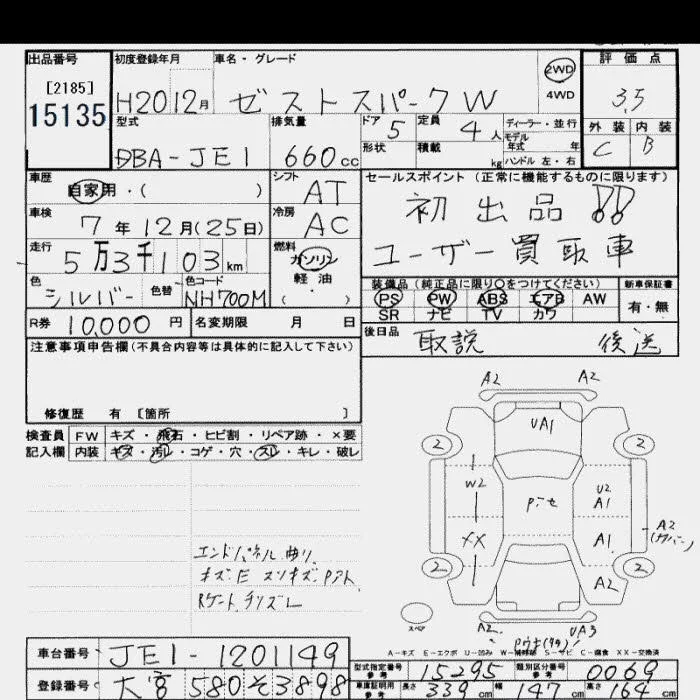 出品番号
[2185]
15135
初度登録年月
H20 12月
車名・グレード
ゼストスパークW
2WD
4WD
評価点
3.5
外装 内装
C B
型式
DBA-JE1
排気量
660cc
ドア 5
定員 4人
ディーラー・並行
モデル年式 年
形状
積載 kg
ハンドル 左・右
車歴
自家用・( )
シフト
AT
車検
7年12月(25日)
冷房
AC
走行
5万3千103km
燃料
ガソリン
軽油
( )
色
シルバー
色替
色コード
NH700M
R券 10,000円
名変期限 月 日
セールスポイント (正常に機能するものに限ります)
初出品!!
ユーザー買取車
装備品(純正品に限り○をつけてください)
PS PW ABS エアB AW
SR ナビ TV カワ
新車保証書
有・無
後日品
取説 後送
注意事項申告欄(不具合内容等は具体的に記入して下さい)
修復歴 有 [箇所 ]
検査員記入欄
FW キズ・飛石・ヒビ割・リペア跡・×要
内装 キズ・汚レ・コゲ・穴・スレ・キレ・破レ
エンドパネル曲リ
キズ E スリキズ Pアト
Rゲート チリズレ
A2 A2
UA1
2 2
W2
U2
A1
XX
A1
A2
A2
(カバー)
2 2
スペア
A2
UA3
A-キズ E-エクボ U-凹み W-補修跡 S-サビ C-腐食 XX-交換済
車台番号 JE1-1201149
登録番号 大宮 580 そ 3898
型式指定番号 参考 15295
類別区分番号 参考 0069
車庫証明用 参考 長さ 339cm 幅 147cm 高さ 164cm